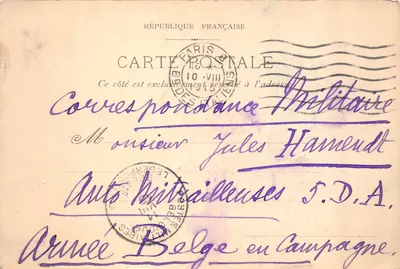 RÉPUBLIQUE FRANÇAISE
CARTE POSTALE
Ce côté est exclusivement réservé à l'adresse
PARIS
10 - VIII
Correspondance Militaire
Monsieur Jules Hamendt
Auto Mitrailleuses S.D.A.
Armée Belge en Campagne.